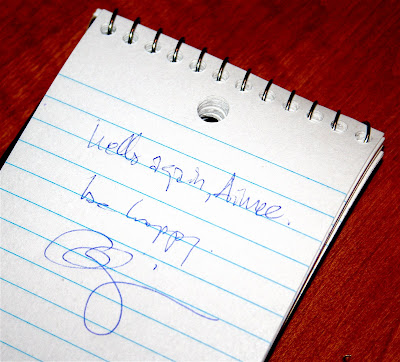 Hello again, Aimee.
be happy.